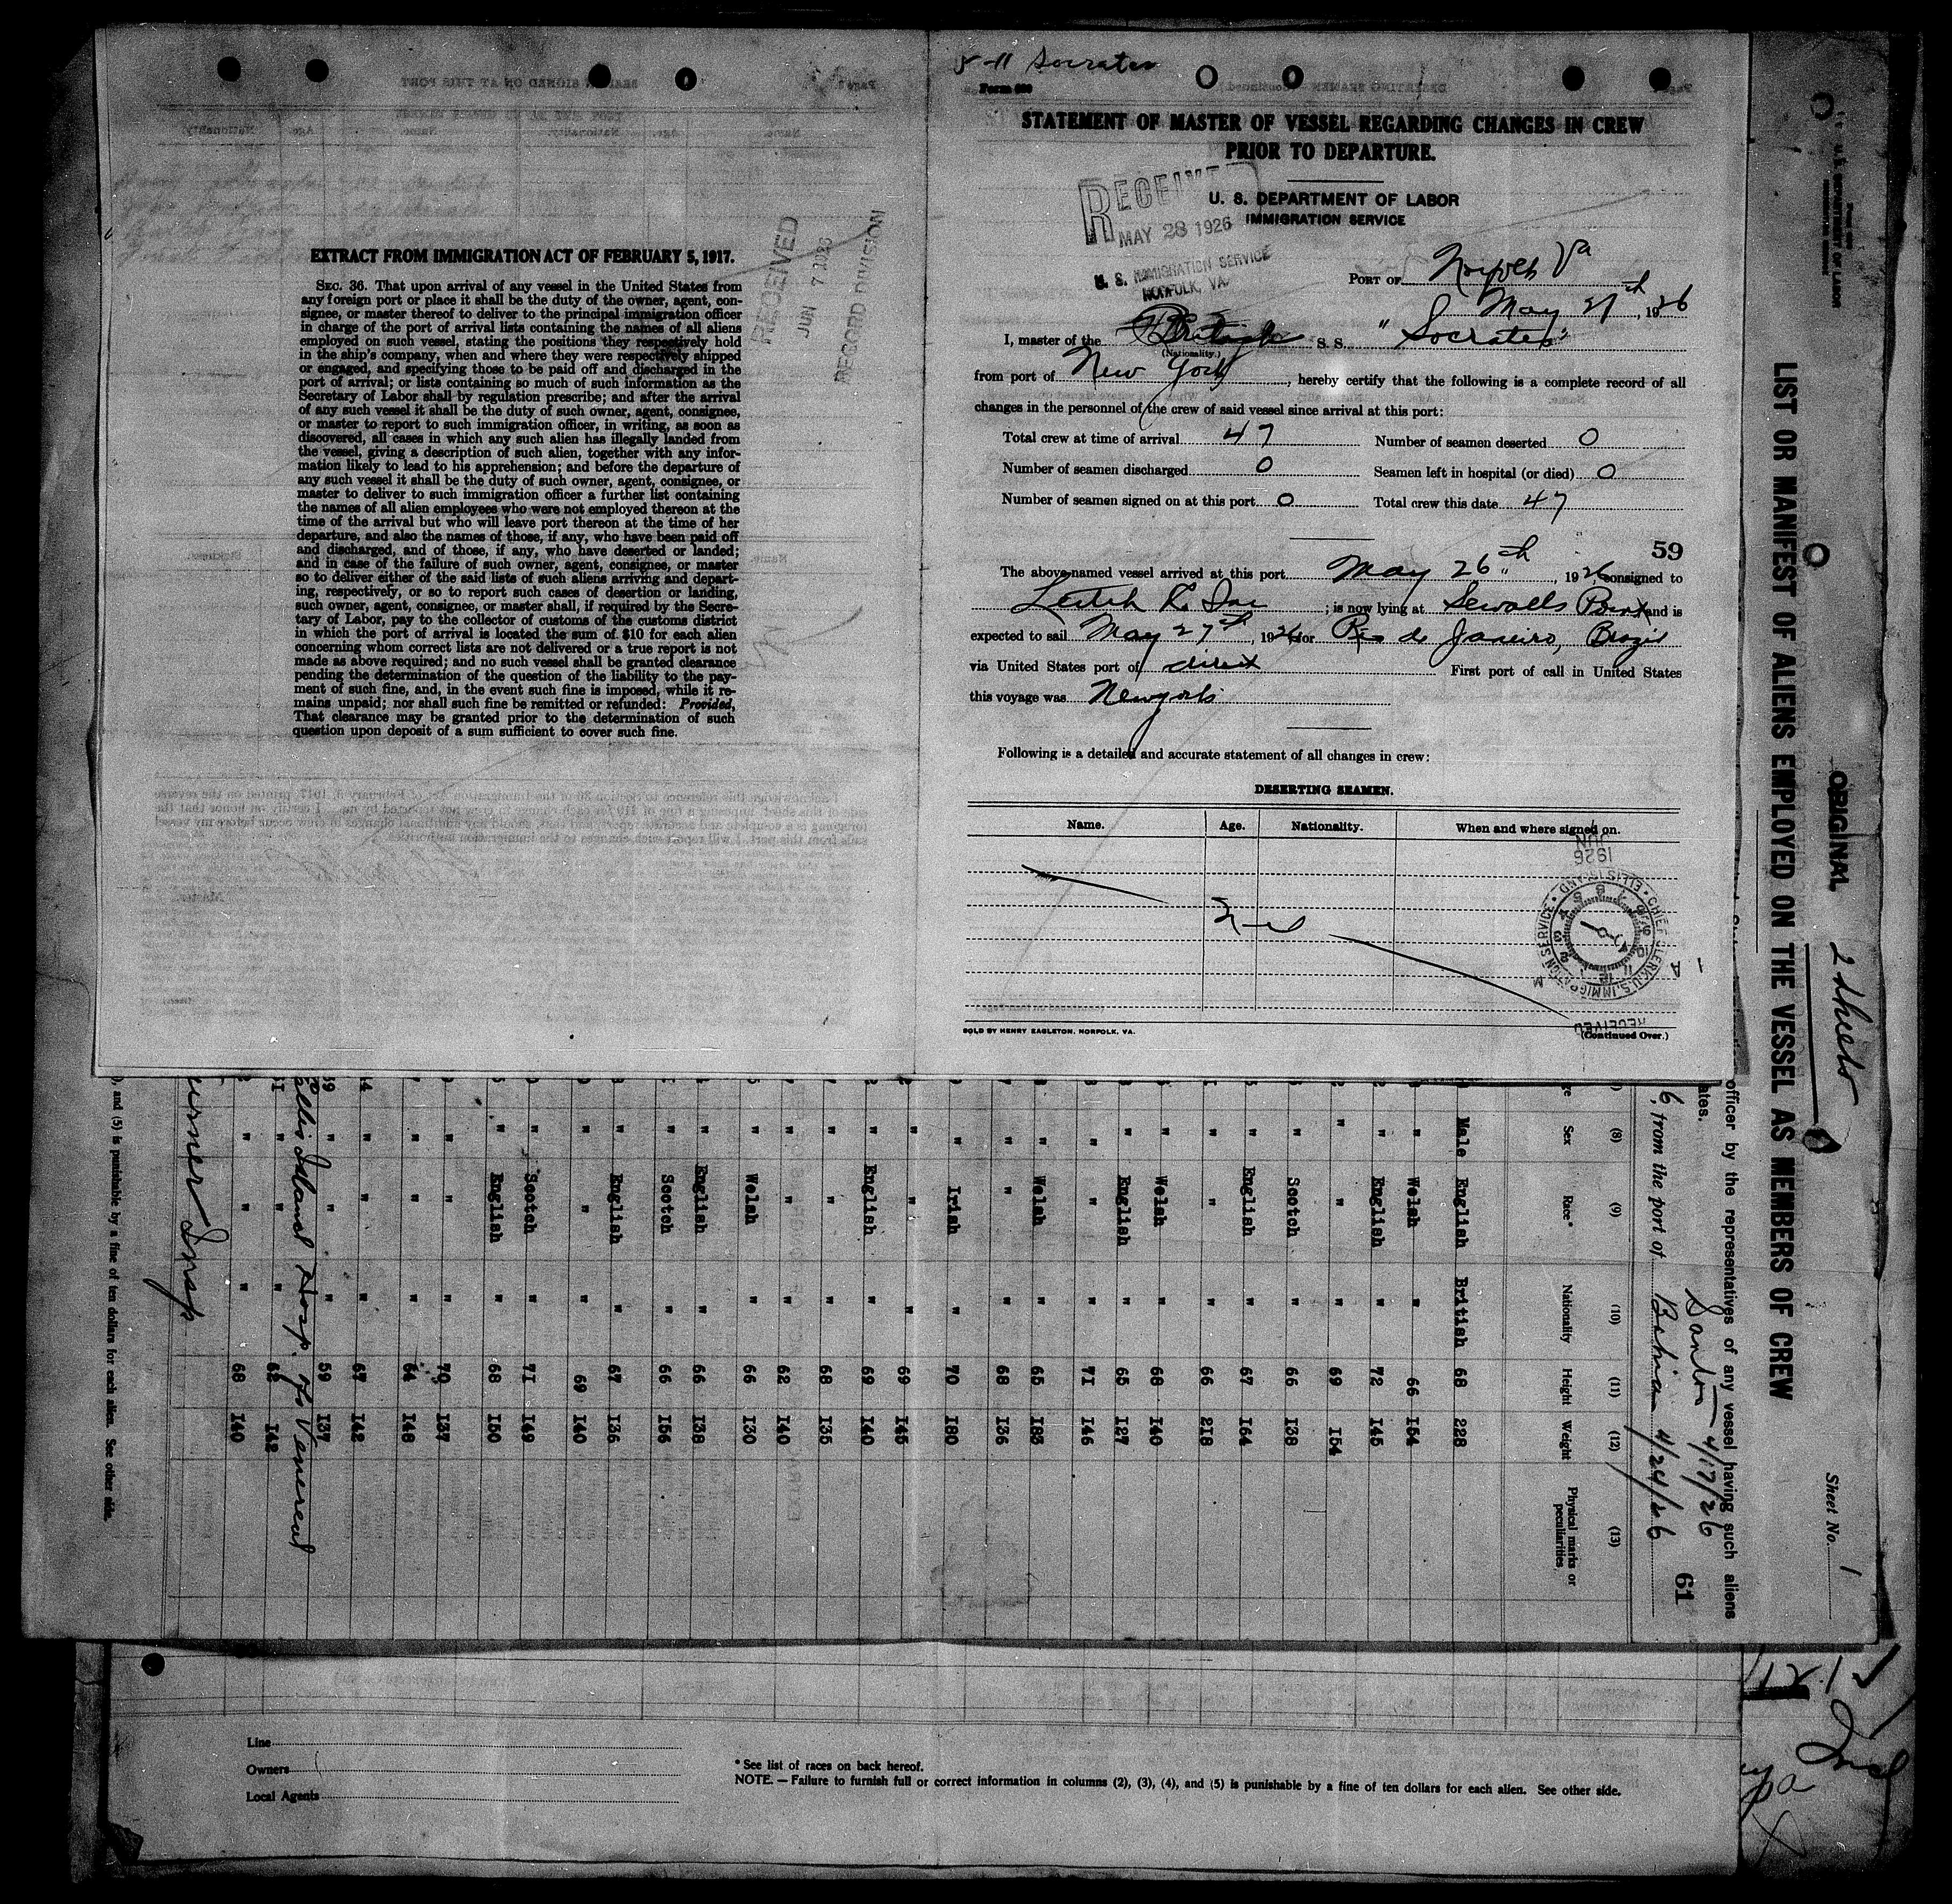 5-11 Socrates
STATEMENT OF MASTER OF VESSEL REGARDING CHANGES IN CREW
PRIOR TO DEPARTURE.
U. S. DEPARTMENT OF LABOR
IMMIGRATION SERVICE
RECEIVED
MAY 28 1926
U. S. IMMIGRATION SERVICE
NORFOLK, VA.
PORT OF Norfolk Va
May 27th, 1926
I, master of the British S. S. "Socrates"
(Nationality.)
from port of New York, hereby certify that the following is a complete record of all
changes in the personnel of the crew of said vessel since arrival at this port:
Total crew at time of arrival 47 Number of seamen deserted 0
Number of seamen discharged 0 Seamen left in hospital (or died) 0
Number of seamen signed on at this port 0 Total crew this date 47
59
The above-named vessel arrived at this port May 26th, 1926 consigned to
; is now lying at Sewalls Point and is
expected to sail May 27th, 1926 for Rio de Janeiro, Brazil
via United States port of direct First port of call in United States
this voyage was Newyork
Following is a detailed and accurate statement of all changes in crew:
DESERTING SEAMEN.
Name. Age. Nationality. When and where signed on.
Nil
SOLD BY HENRY EAGLETON, NORFOLK, VA.
(Continued Over.)
EXTRACT FROM IMMIGRATION ACT OF FEBRUARY 5, 1917.
SEC. 36. That upon arrival of any vessel in the United States from
any foreign port or place it shall be the duty of the owner, agent, con-
signee, or master thereof to deliver to the principal immigration officer
in charge of the port of arrival lists containing the names of all aliens
employed on such vessel, stating the positions they respectively hold
in the ship's company, when and where they were respectively shipped
or engaged, and specifying those to be paid off and discharged in the
port of arrival; or lists containing so much of such information as the
Secretary of Labor shall by regulation prescribe; and after the arrival
of any such vessel it shall be the duty of such owner, agent, consignee,
or master to report to such immigration officer, in writing, as soon as
discovered, all cases in which any such alien has illegally landed from
the vessel, giving a description of such alien, together with any infor-
mation likely to lead to his apprehension; and before the departure of
any such vessel it shall be the duty of such owner, agent, consignee, or
master to deliver to such immigration officer a further list containing
the names of all alien employees who were not employed thereon at the
time of the arrival but who will leave port thereon at the time of her
departure, and also the names of those, if any, who have been paid off
and discharged, and of those, if any, who have deserted or landed;
and in case of the failure of such owner, agent, consignee, or master
so to deliver either of the said lists of such aliens arriving and depart-
ing, respectively, or so to report such cases of desertion or landing,
such owner, agent, consignee, or master shall, if required by the Secre-
tary of Labor, pay to the collector of customs of the customs district
in which the port of arrival is located the sum of $10 for each alien
concerning whom correct lists are not delivered or a true report is not
made as above required; and no such vessel shall be granted clearance
pending the determination of the question of the liability to the pay-
ment of such fine, and, in the event such fine is imposed, while it re-
mains unpaid; nor shall such fine be remitted or refunded: Provided,
That clearance may be granted prior to the determination of such
question upon deposit of a sum sufficient to cover such fine.
RECEIVED
JUN 7 1926
RECORD DIVISION
ORIGINAL 2 sheets Sheet No. 1
LIST OR MANIFEST OF ALIENS EMPLOYED ON THE VESSEL AS MEMBERS OF CREW
officer by the representatives of any vessel having such aliens
Santos 4/17/26
6, from the port of Bahia 4/24/26 61
(8) (9) (10) (11) (12) (13)
Sex Race* Nationality Height Weight Physical marks or peculiarities
Male English British 68 228
" Welsh " 66 154
" English " 72 145
" " " 69 154
" Scotch " 66 138
" English " 67 164
" " " 66 218
" Welsh " 68 140
" English " 65 127
" " " 71 146
" Welsh " 65 183
" " " 68 136
" Irish " 70 180
" " " 69 145
" English " 69 140
" " " 68 135
" " " 62 140
" Welsh " 66 130
" English " 66 138
" Scotch " 66 156
" English " 67 136
" " " 69 140
" Scotch " 71 149
" English " 68 150
" " " 70 137
" " " 64 148
" " " 67 142
" " " 59 137
Ellis Island Hosp. for Venereal
" " " 62 142
" " " 68 140
Turner Insp
, and (5) is punishable by a fine of ten dollars for each alien. See other side.
Line
Owners
Local Agents
* See list of races on back hereof.
NOTE. — Failure to furnish full or correct information in columns (2), (3), (4), and (5) is punishable by a fine of ten dollars for each alien. See other side.